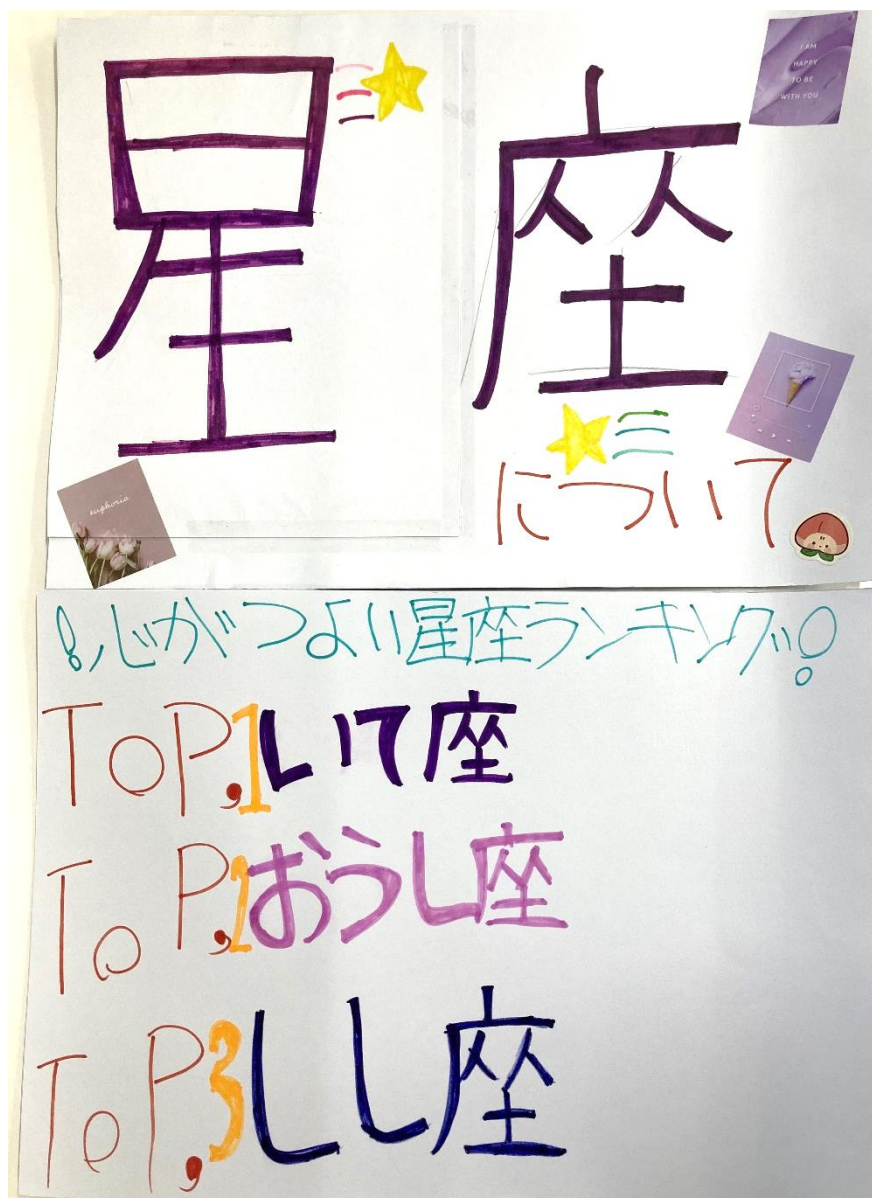 星座
について
I AM
HAPPY
TO BE
WITH YOU
euphoria
!心がつよい星座ランキング!
ToP,1いて座
ToP,2おうし座
ToP,3しし座